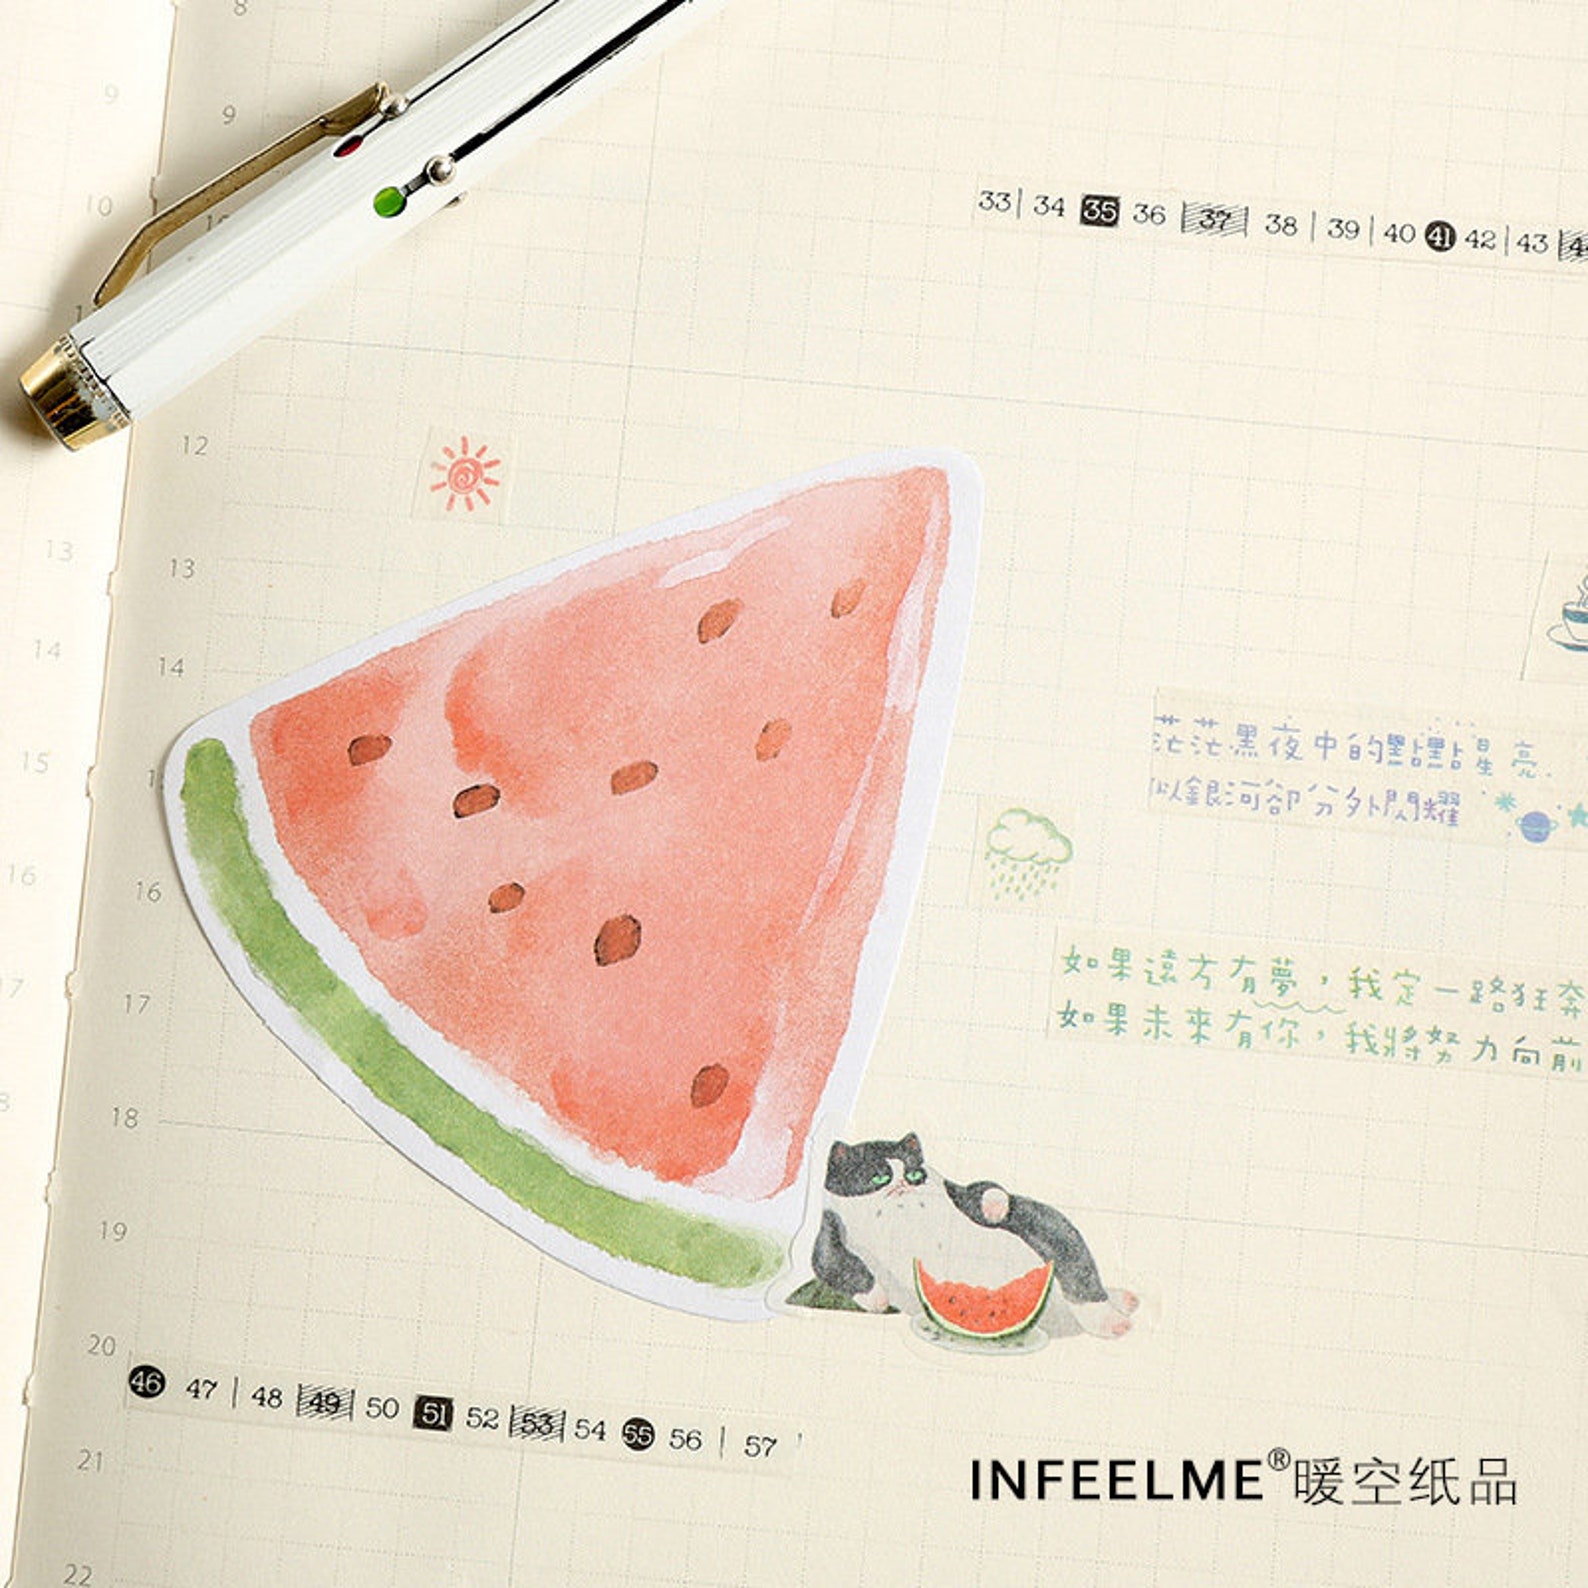 8
9
9
10
10
33 | 34 35 36 37 38 | 39 | 40 41 42 | 43
12
13
13
14
14
15
茫茫黑夜中的點點星亮
似銀河卻分外閃耀
16
16
如果遠方有夢，我定一路狂奔
如果未來有你，我將努力向前
17
17
18
19
20
46 47 | 48 49 50 51 52 53 54 55 56 | 57
21
INFEELME®暖空纸品
22